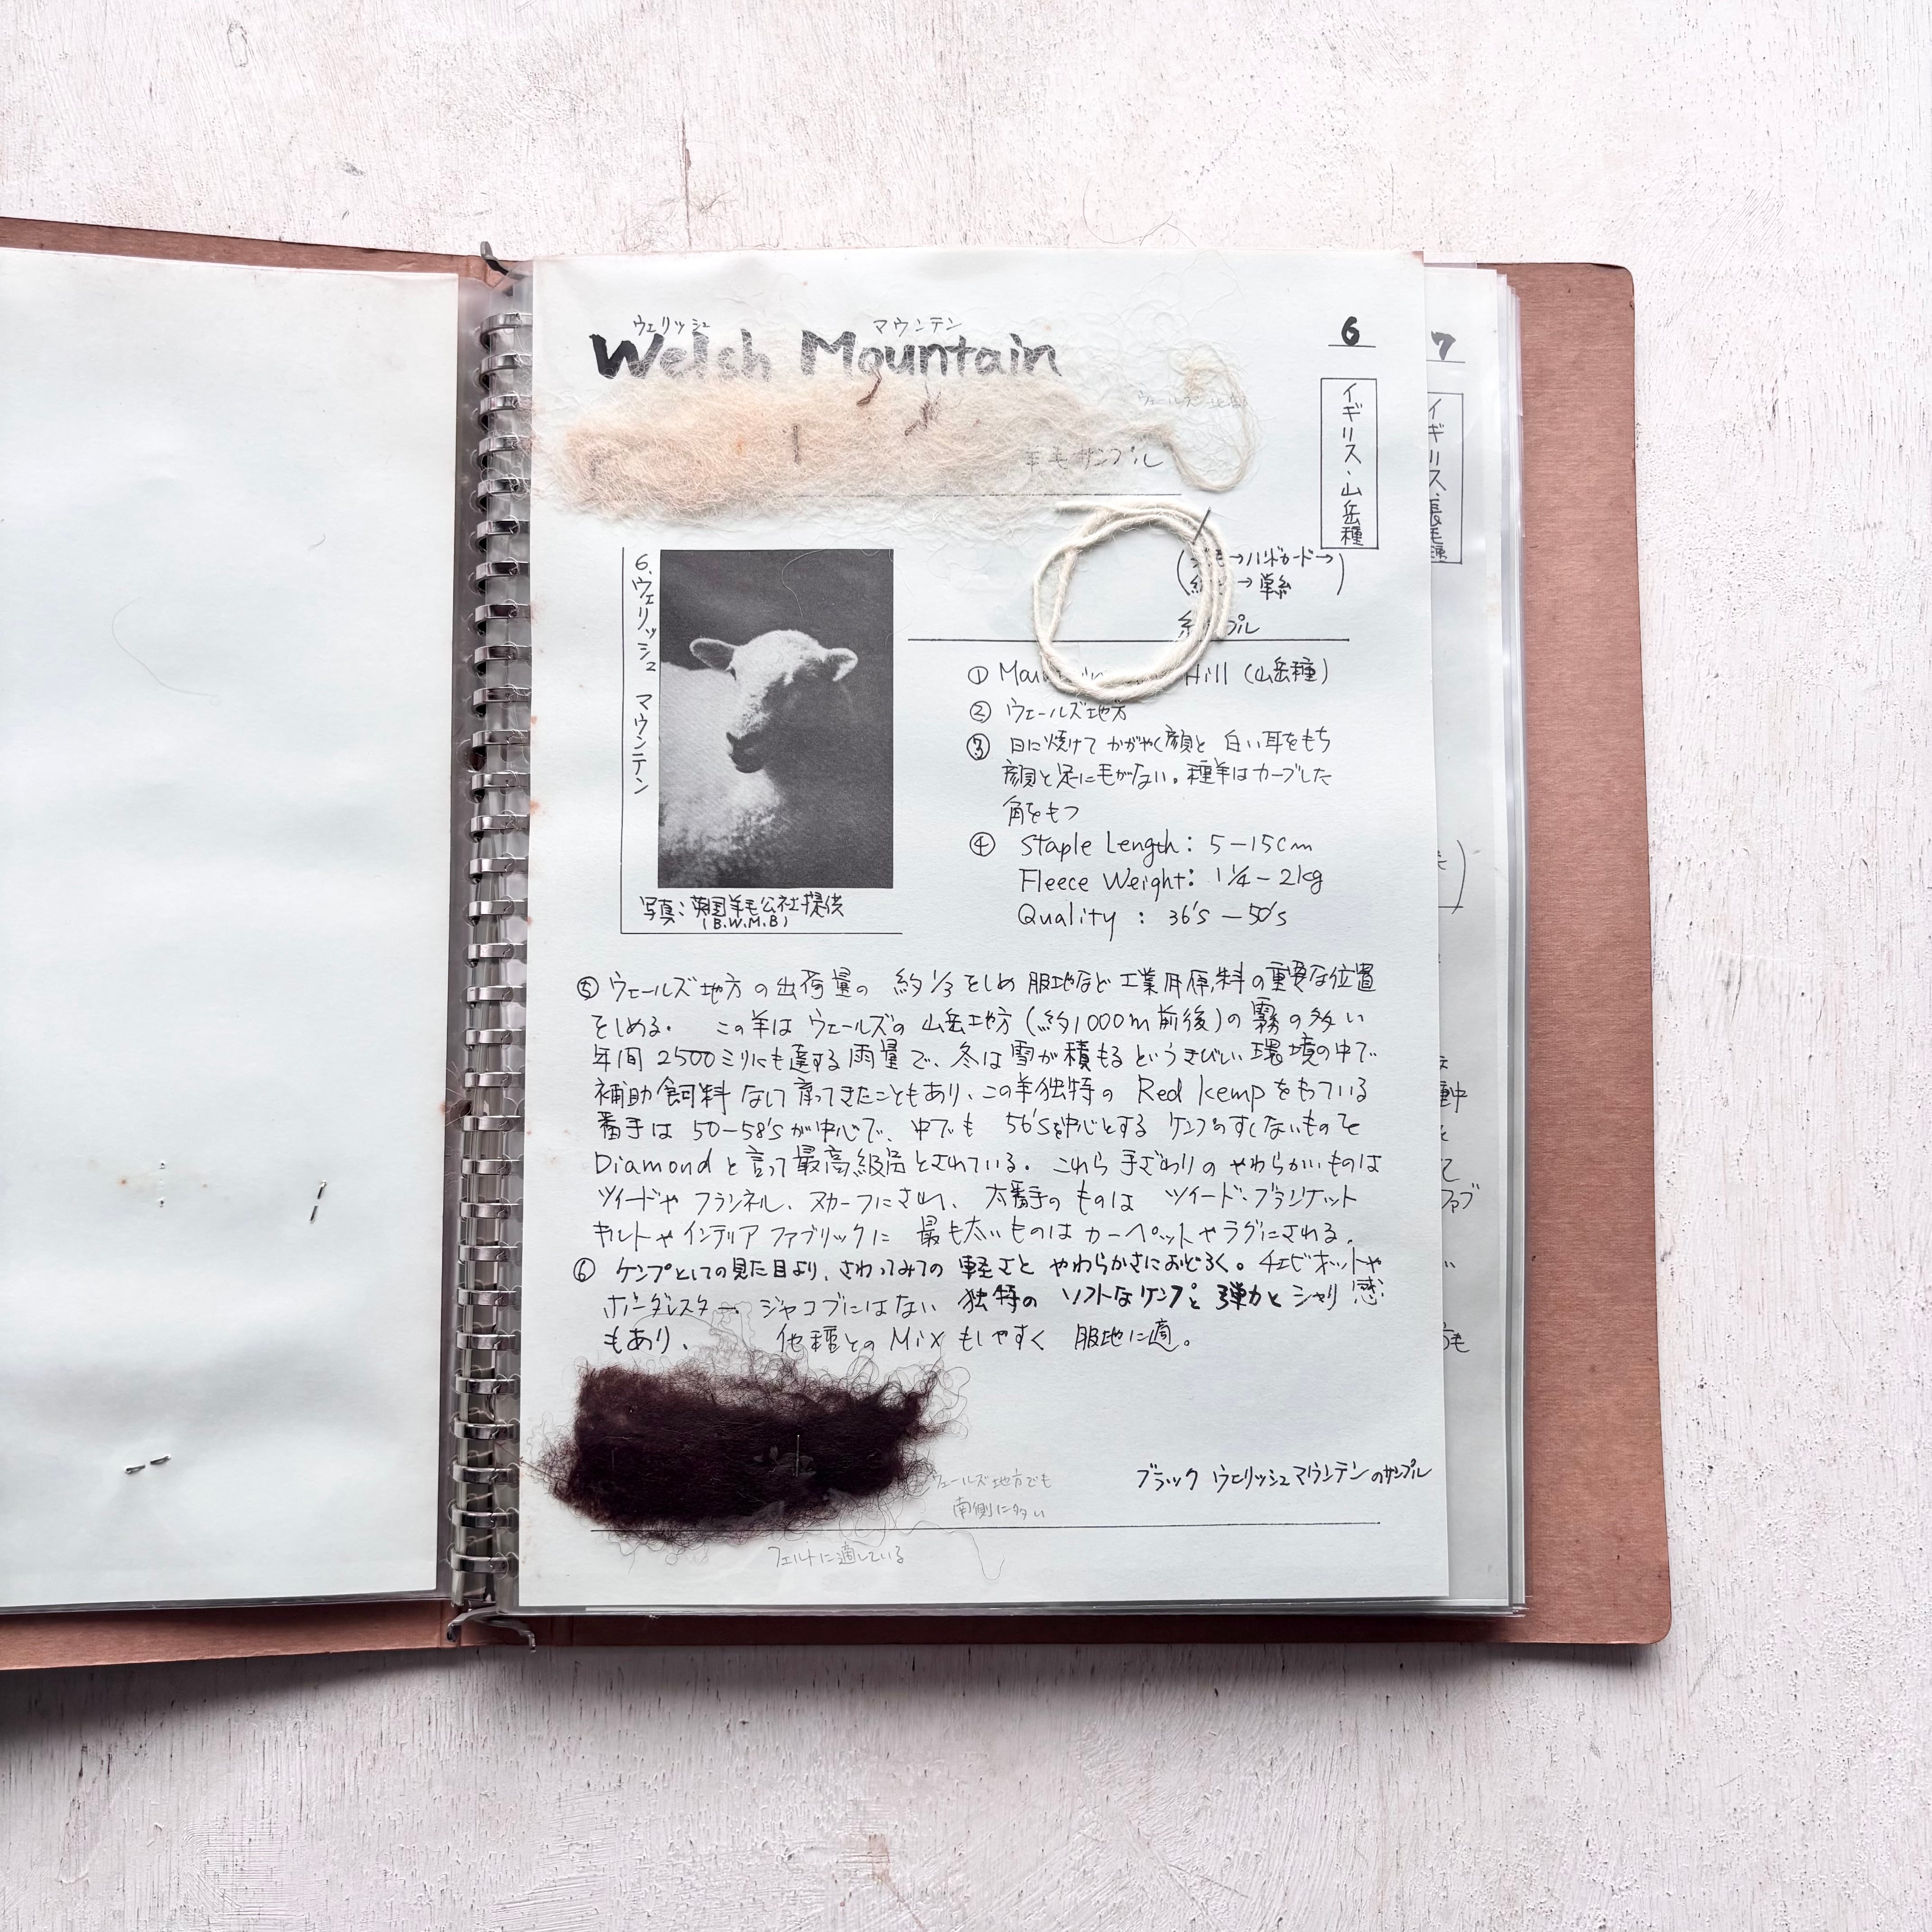 ウェリッシュ マウンテン
Welsh Mountain
6
イギリス・山岳種
羊毛サンプル
→ハンドカード→
→単糸
6. ウェリッシュ マウンテン
写真：英国羊毛公社提供
(B.W.M.B)
① Hill (山岳種)
② ウェールズ地方
③ 日に焼けてかがやく顔と 白い耳をもち
顔と足に毛がない。種羊はカーブした
角をもつ
④ Staple Length: 5-15cm
Fleece Weight: 1 1/4-2kg
Quality : 36's-50's
⑤ ウェールズ地方の出荷量の 約1/3をしめ 服地など工業用原料の重要な位置
をしめる. この羊はウェールズの 山岳地方(約1000m前後)の霧の多い
年間2500ミリにも達する雨量で、冬は雪が積もるというきびしい環境の中で
補助飼料なして育ってきたこともあり、この羊独特の Red Kempをもっている
番手は50-58'sが中心で、中でも 56'sを中心とする ケンプのすくないものを
Diamondと言って最高級品とされている. これら手ざわりのやわらかいものは
ツイードやフランネル、スカーフにされ、太番手のものは ツイード・ブランケット
キルトやインテリアファブリックに 最も太いものはカーペットやラグにされる.
⑥ ケンプとしての見た目より、さわってみての軽さと やわらかさにおどろく。チェビオットや
ボーダレスター ジャコブにはない 独特の ソフトなケンプと 弾力と シャリ感
もあり、 他種とのMixもしやすく 服地に適。
ウェールズ地方でも
南側に多い
ブラック ウェリッシュマウンテンのサンプル
フェルトに適している
7
イギリス・長毛種